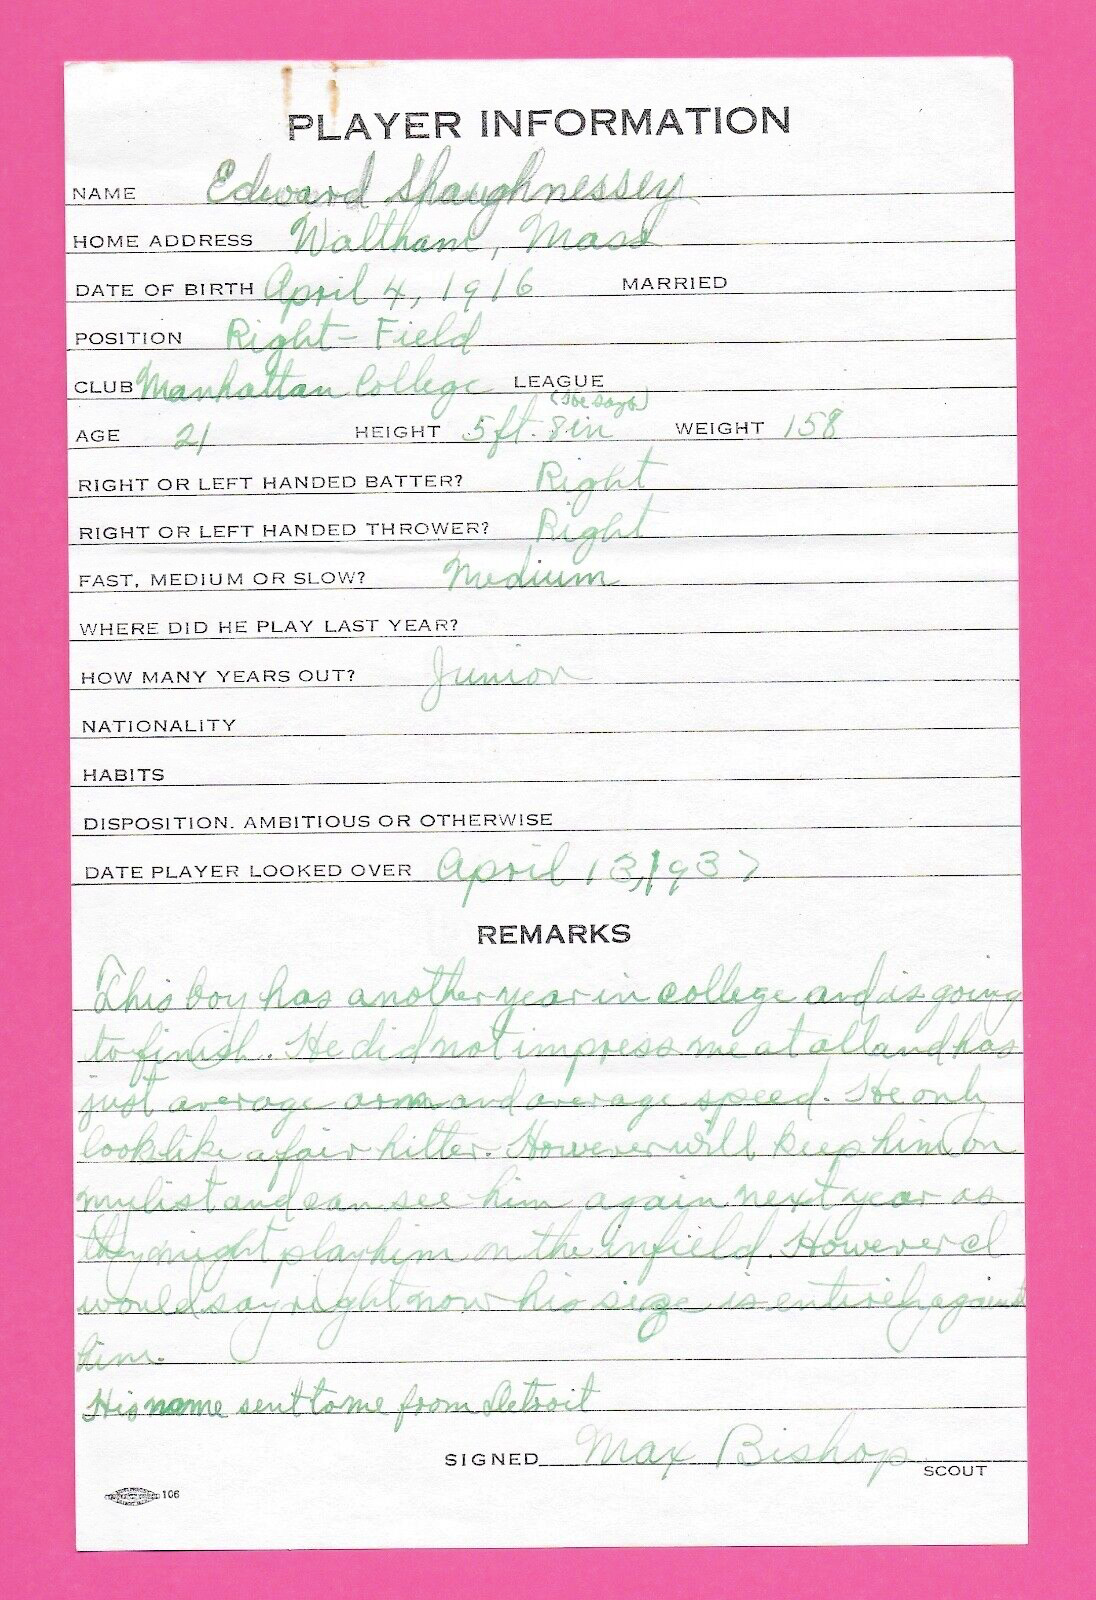 PLAYER INFORMATION
NAME Edward Shaughnessey
HOME ADDRESS Waltham, Mass
DATE OF BIRTH April 4, 1916 MARRIED
POSITION Right-Field
CLUB Manhattan College LEAGUE
(he says)
AGE 21 HEIGHT 5ft. 8in WEIGHT 158
RIGHT OR LEFT HANDED BATTER? Right
RIGHT OR LEFT HANDED THROWER? Right
FAST, MEDIUM OR SLOW? Medium
WHERE DID HE PLAY LAST YEAR?
HOW MANY YEARS OUT? Junior
NATIONALITY
HABITS
DISPOSITION. AMBITIOUS OR OTHERWISE
DATE PLAYER LOOKED OVER April 13, 1937
REMARKS
This boy has another year in college and is going
to finish. He did not impress me at all and has
just average arm and average speed. He only
look like a fair hitter. However will keep him on
my list and can see him again next year as
they might play him on the infield. However I
would say right now his size is entirely against
him.
His name sent to me from Detroit
SIGNED Max Bishop
SCOUT
106